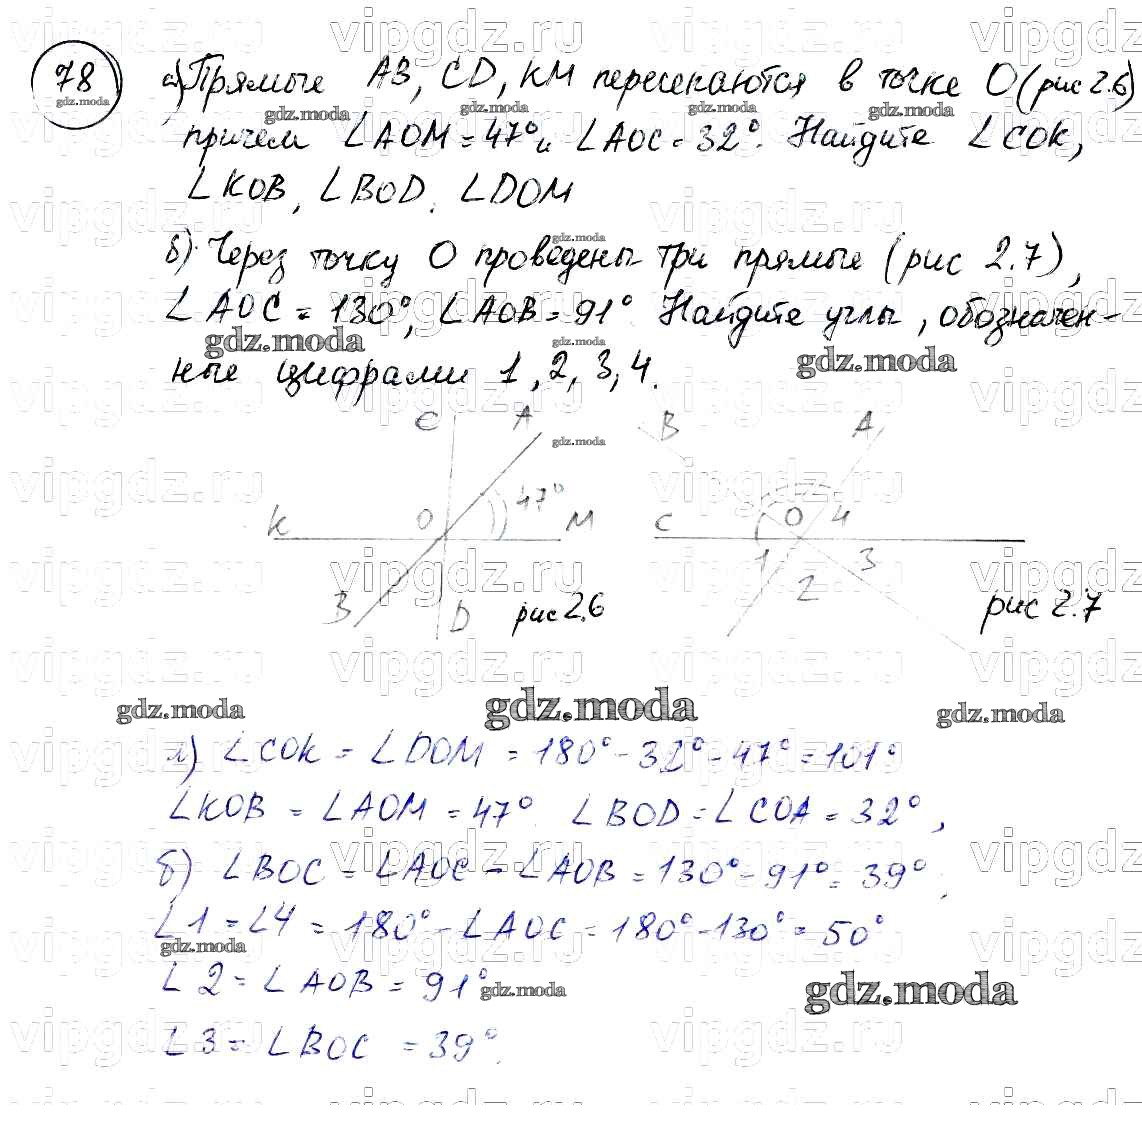 78 а) Прямые AB, CD, KM пересекаются в точке O (рис 2.6)
причем ∠AOM = 47° и ∠AOC = 32°. Найдите ∠COK,
∠KOB, ∠BOD, ∠DOM
б) Через точку O проведены три прямые (рис 2.7),
∠AOC = 130°, ∠AOB = 91° Найдите углы, обозначен-
ные цифрами 1, 2, 3, 4.
C A B A
K O 47° M C O 4
1 2 3
B D рис 2.6 рис 2.7
а) ∠COK = ∠DOM = 180° - 32° - 47° = 101°
∠KOB = ∠AOM = 47° ∠BOD = ∠COA = 32°,
б) ∠BOC = ∠AOC - ∠AOB = 130° - 91° = 39°,
∠1 = ∠4 = 180° - ∠AOC = 180° - 130° = 50°
∠2 = ∠AOB = 91°
∠3 = ∠BOC = 39°.
vipgdz.ru
gdz.moda